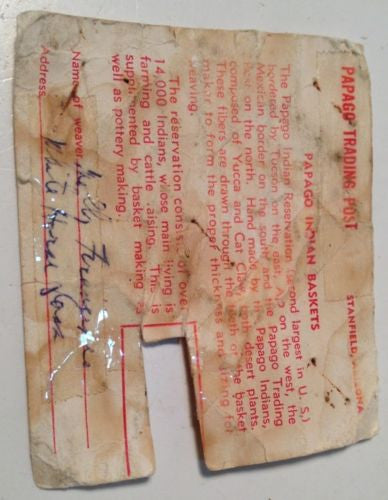 PAPAGO TRADING POST
STANFIELD, ARIZONA
PAPAGO INDIAN BASKETS
The Papago Indian Reservation (second largest in U. S.)
bordered by Tucson on the east, Ajo on the west, the
Mexican border on the south and the Papago Trading
Post on the north. Hand made by the Papago Indians,
composed of Yucca and Cat Claw, both desert plants.
These fibers are drawn through the teeth of the basket
maker to form the proper thickness and sizing for
weaving.
The reservation consists of over
14,000 Indians, whose main living is
farming and cattle raising. This is
supplemented by basket making as
well as pottery making.
Name of weaver
Address White Horse Pass